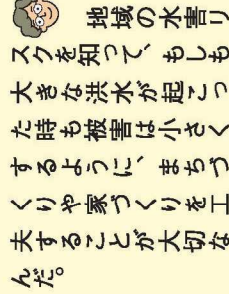 地域の水害リ
スクを知って、もしも
大きな洪水が起こっ
た時も被害は小さく
するように、まちづ
くりや家づくりを工
夫することが大切な
んだ。